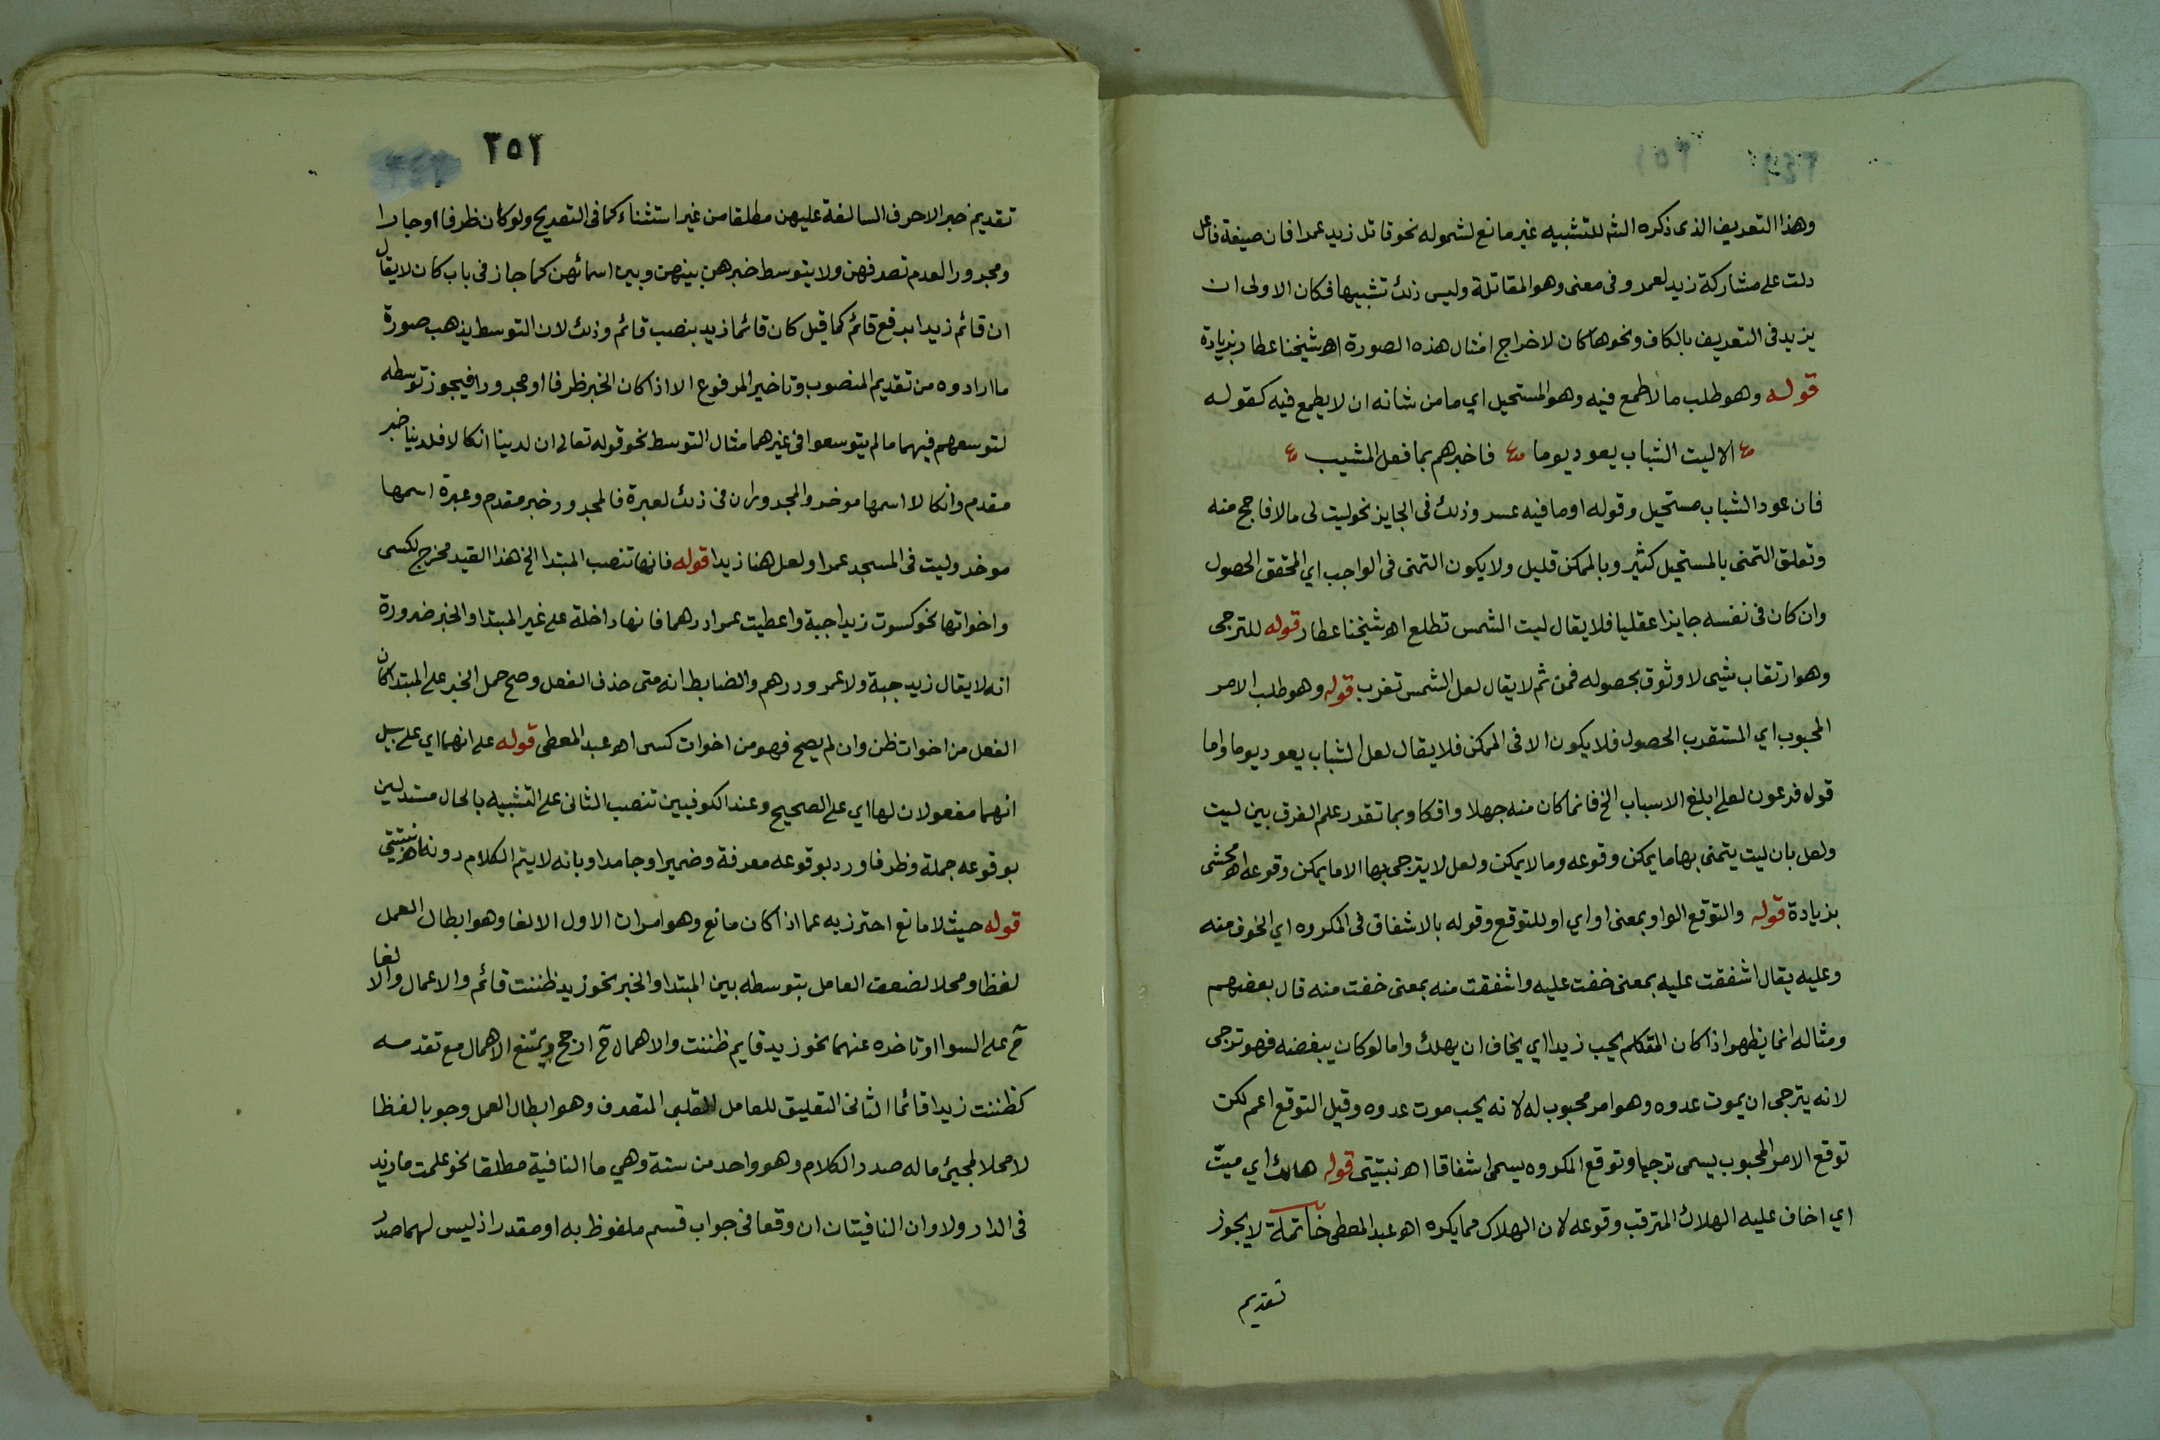 ٣٥١
وهذا التعريف الذى ذكره الشه للتشبيه غير مانع لشموله نحو قاتل زيد عمرا فان صيغة فاعل
دلت على مشاركة زيد لعمرو فى معنى وهو المقاتلة وليس ذلك تشبيها فكان الاولى ان
يزيد فى التعريف بالكاف ونحوها كان لاخراج امثال هذه الصورة اهـ شيخنا عطار بزيادة
قوله وهو طلب ما لا طمع فيه وهو المستحيل اي ما من شانه ان لا يطمع فيه كقوله
الا ليت الشباب يعود يوما فاخبرهم بما فعل المشيب
فان عود الشباب مستحيل وقوله او ما فيه عسر وذلك فى الجايز نحو ليت لى مالا فاحج منه
وتعلق التمنى بالمستحيل كثير وبالممكن قليل ولا يكون التمنى فى الواجب اي المحقق الحصول
وان كان فى نفسه جايزا عقليا فلا يقال ليت الشمس تطلع اهـ شيخنا عطار قوله للترجى
وهو ارتقاب شيى لا وثوق بحصوله فمن ثم لا يقال لعل الشمس تغرب قوله وهو طلب الامر
المحبوب اي المستقرب الحصول فلا يكون الا فى الممكن فلا يقال لعل الشباب يعود يوما واما
قوله فرعون لعلى ابلغ الاسباب الخ فانما كان منه جهلا وافكا وبما تقرر علم الفرق بين ليت
ولعل بان ليت يتمنى بها ما يمكن وقوعه وما لا يمكن ولعل لا يترجى بها الا ما يمكن وقوعه اهـ محشى
بزيادة قوله والتوقع الواو بمعنى او اي او للتوقع وقوله بالاشفاق فى المكروه اي الخوف منه
وعليه يقال اشفقت عليه بمعنى خفت عليه واشفقت منه بمعنى خفت منه قال بعضهم
ومثاله انما يظهر اذا كان المتكلم يحب زيدا اي يخاف ان يهلك واما لو كان يبغضه فهو ترجى
لانه يترجى ان يموت عدوه وهو امر محبوب له لانه يحب موت عدوه وقيل التوقع اعم لكن
توقع الامر المحبوب يسمى ترجيا وتوقع المكروه يسمى اشفاقا اهـ نبتيتى قوله هالك اي ميت
اي اخاف عليه الهلاك المترقب وقوعه لان الهلاك مما يكره اهـ عبد المعطى خاتمة لا يجوز
تقديم
٣٥٢
تقديم خبر الاحرف السالفة عليهن مطلقا من غير استثناء كما فى التصريح ولو كان ظرفا او جارا
ومجرورا لعدم تصرفهن ولا يتوسط خبرهن بينهن وبين اسمائهن كما جاز فى باب كان لا يقال
ان قائم زيدا برفع قائم كما قيل كان قائما زيد بنصب قائم وذلك لان التوسط يذهب صورة
ما ارادوه من تقديم المنصوب وتاخير المرفوع الا اذا كان الخبر ظرفا او مجرورا فيجوز توسطه
لتوسعهم فيهما ما لم يتوسعوا فى غيرهما مثال التوسط نحو قوله تعالى ان لدينا انكالا فلدينا خبر
مقدم وانكالا اسمها موخر والمجرور ان فى ذلك لعبرة فالمجرور خبر مقدم وعبرة اسمها
موخر وليت فى المسجد عمرا ولعل هنا زيدا قوله فانها تنصب المبتدا الخ هذا القيد مخرج لكسى
واخواتها نحو كسوت زيدا جبة واعطيت عمرا درهما فانها داخلة على غير المبتدا والخبر ضرورة
انه لا يقال زيد جبة ولا عمرو درهم والضابط انه متى حذف الفعل وصح حمل الخبر على المبتدا كان
الفعل من اخوات ظن وان لم يصح فهو من اخوات كسى اهـ عبد المعطى قوله على انهما اي على سبيل
انهما مفعولان لها اي على الصحيح وعند الكوفيين تنصب الثانى على التشبيه بالحال مستدلين
بوقوعه جملة وظرفا ورد بوقوعه معرفة وضميرا وجامدا وبانه لا يتم الكلام دونه اهـ نبتيتى
قوله حيث لا مانع احترز به عما اذا كان مانع وهو امران الاول الالغا وهو ابطال العمل
لفظا ومحلا لضعف العامل بتوسطه بين المبتدا والخبر نحو زيد ظننت قائم والاعمال والالغا
ح على السوا او تاخره عنهما نحو زيد قايم ظننت والاهمال ح ارجح ويمتنع الاهمال مع تقدمه
كظننت زيدا قائما الثانى التعليق للعامل القلبى المتصرف وهو ابطال العمل وجوبا لفظا
لا محلا لمجيئ ما له صدر الكلام وهو واحد من ستة وهي ما النافية مطلقا نحو علمت ما زيد
فى الدار ولا وان النافيتان ان وقعا فى جواب قسم ملفوظ به او مقدر اذ ليس لهما صدر